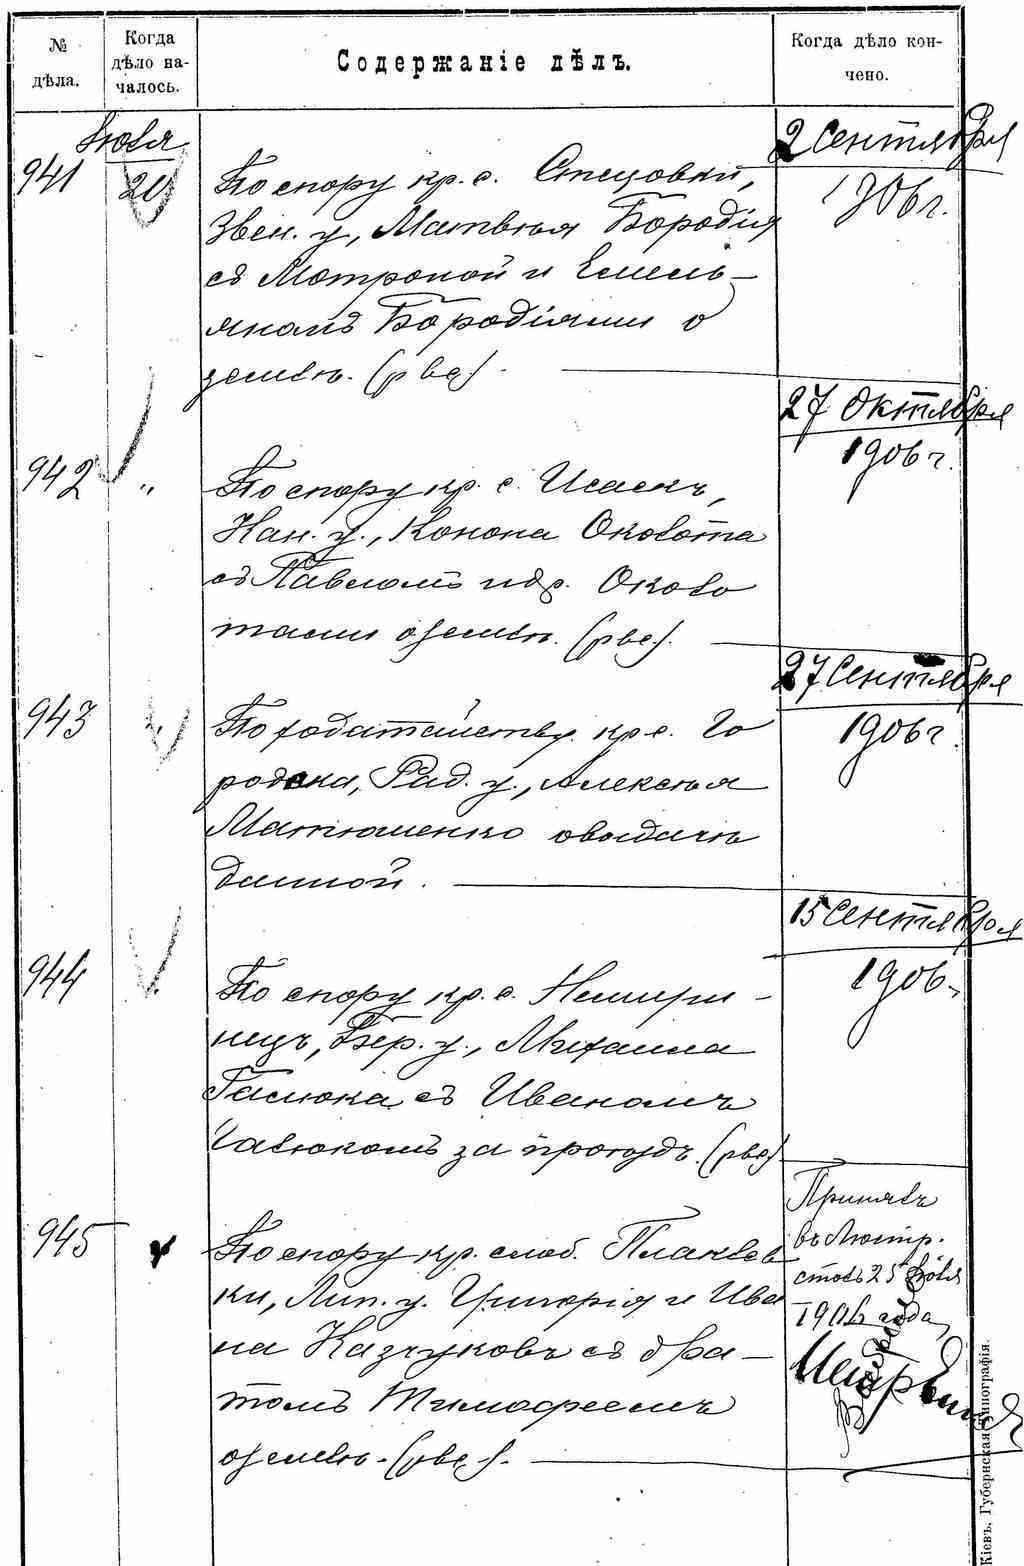 № дѣла.
Когда дѣло на-
чалось.
Содержаніе дѣлъ.
Когда дѣло кон-
чено.
Іюля
941
20
По спору кр. с. Стецовки,
Звен. у., Матвѣя Бородія
съ Мотроной и Емель-
яномъ Бородіями о
землѣ. (рве)
2 Сентября
1906 г.
942
"
По спору кр. с.
Кан. у., Конона Околота
съ Павломъ и др. Около
тами о землѣ. (рве).
27 Октября
1906 г.
943
"
По ходатайству кр. с. Го
родска, Рад. у., Алексѣя
Матюшенко о выдачѣ
данной.
27 Сентября
1906 г.
944
"
По спору кр. с. Немири-
нецъ, Бер. у., Михаила
Гасюка съ Иваномъ
за проходъ. (рве)
15 Сентября
1906
945
По спору кр. слоб.
ки, Лип. у. Григорія и Ива
на Казчуковъ съ бра-
томъ Тимофеемъ
о землѣ. (рве).
25 Іюля
1906 года
Кіевъ. Губернская Типографія.